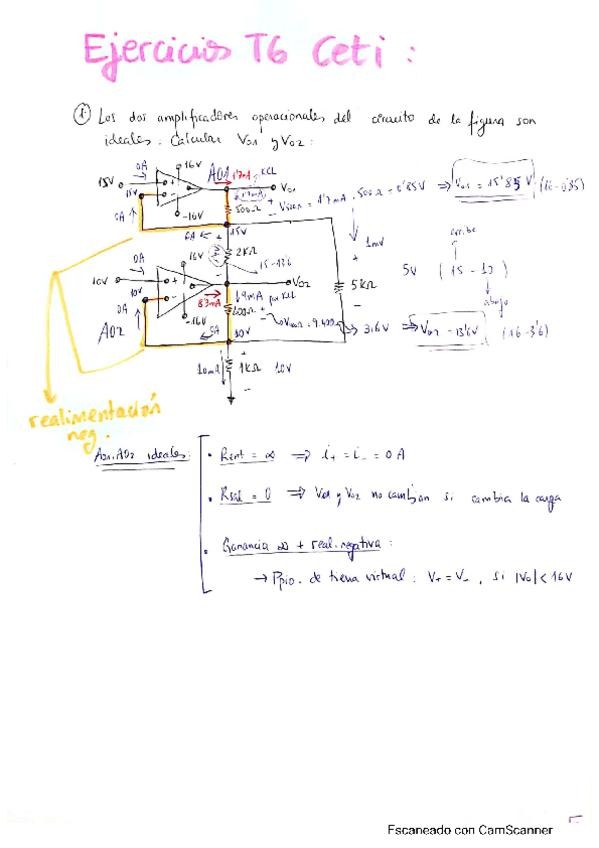 Ejercicios T6 Ceti :
1. Los dos amplificadores operacionales del circuito de la figura son
ideales. Calcular Vo1 y Vo2 :
0A
16V
AO1
1'7mA
KCL
15V
+
Vo1
15V
-
1'7mA
500Ω
+
V500Ω = 1'7mA . 500Ω = 0'85V ⇒ Vo1 = 15'85 V (16-0'85)
0A
-16V
0A
15V
1mV
arriba
16V
2KΩ
15-13'6
+
5V
(15-10)
0A
10V
+
Vo2
5KΩ
abajo
10V
-
83mA
9mA por KCL
0A
400Ω
+
-
⇒ 3.6V ⇒ Vo2 = 13'6V (16-3'6)
AO2
-16V
0A
10V
10mA
+
1KΩ
10V
-
realimentación
neg.
AO1, AO2 ideales:
• Rent = ∞ ⇒ i+ = i- = 0 A
• Rsal = 0 ⇒ Vo1 y Vo2 no cambian si cambia la carga
• Ganancia ∞ + real. negativa :
→ Ppio. de tierra virtual : V+ = V- , si |Vo| < 16V
Escaneado con CamScanner